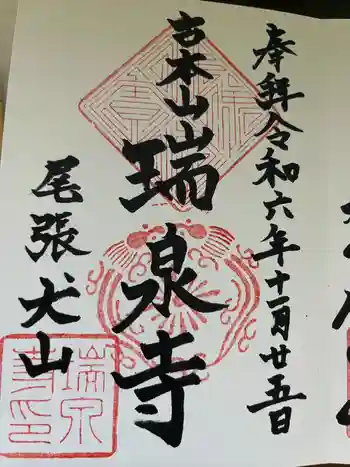 奉拝令和六年十一月廿五日
青木山
瑞泉寺
尾張犬山
瑞泉寺印